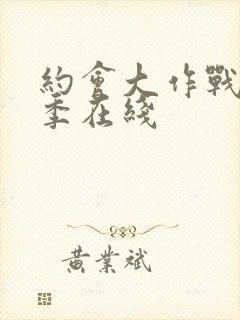 約會大作戰
季在綫
黃業斌